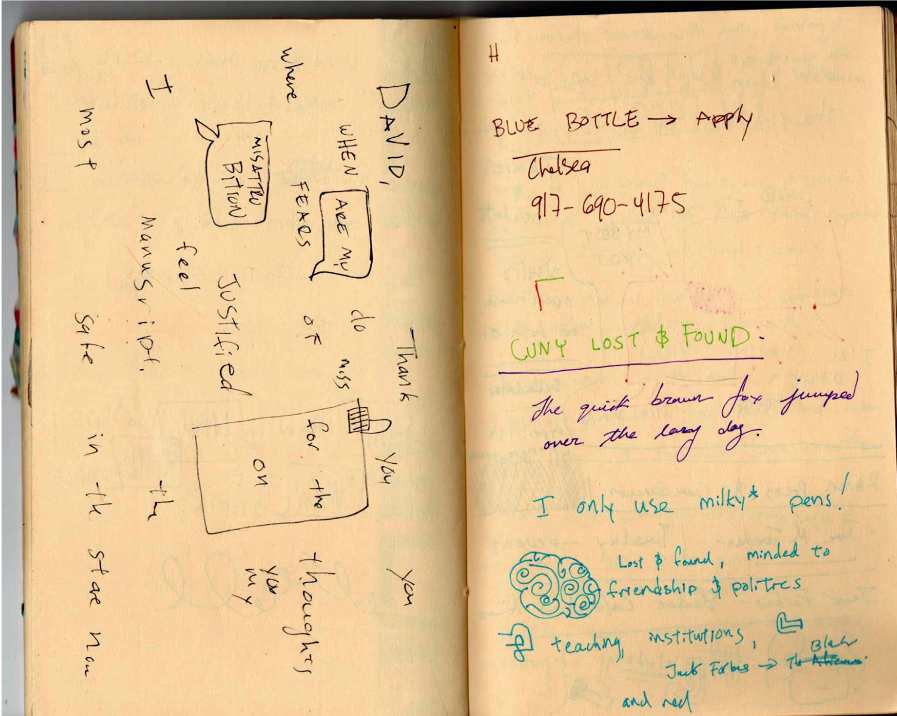 DAVID, Thank you you
WHEN ARE MY do miss
where FEARS OF for the thoughts
MISATTRO
BITION
JUSTIFIED on you
my
I feel the
Manusript.
most safe in the stae now
H
BLUE BOTTLE → Apply
Chelsea
917-690-4175
CUNY LOST & FOUND.
The quick brown fox jumped
over the lazy dog.
I only use milky* pens!
Lost & found, minded to
friendship & politics
teaching, institutions,
Black
Jack Forbes → The
and red